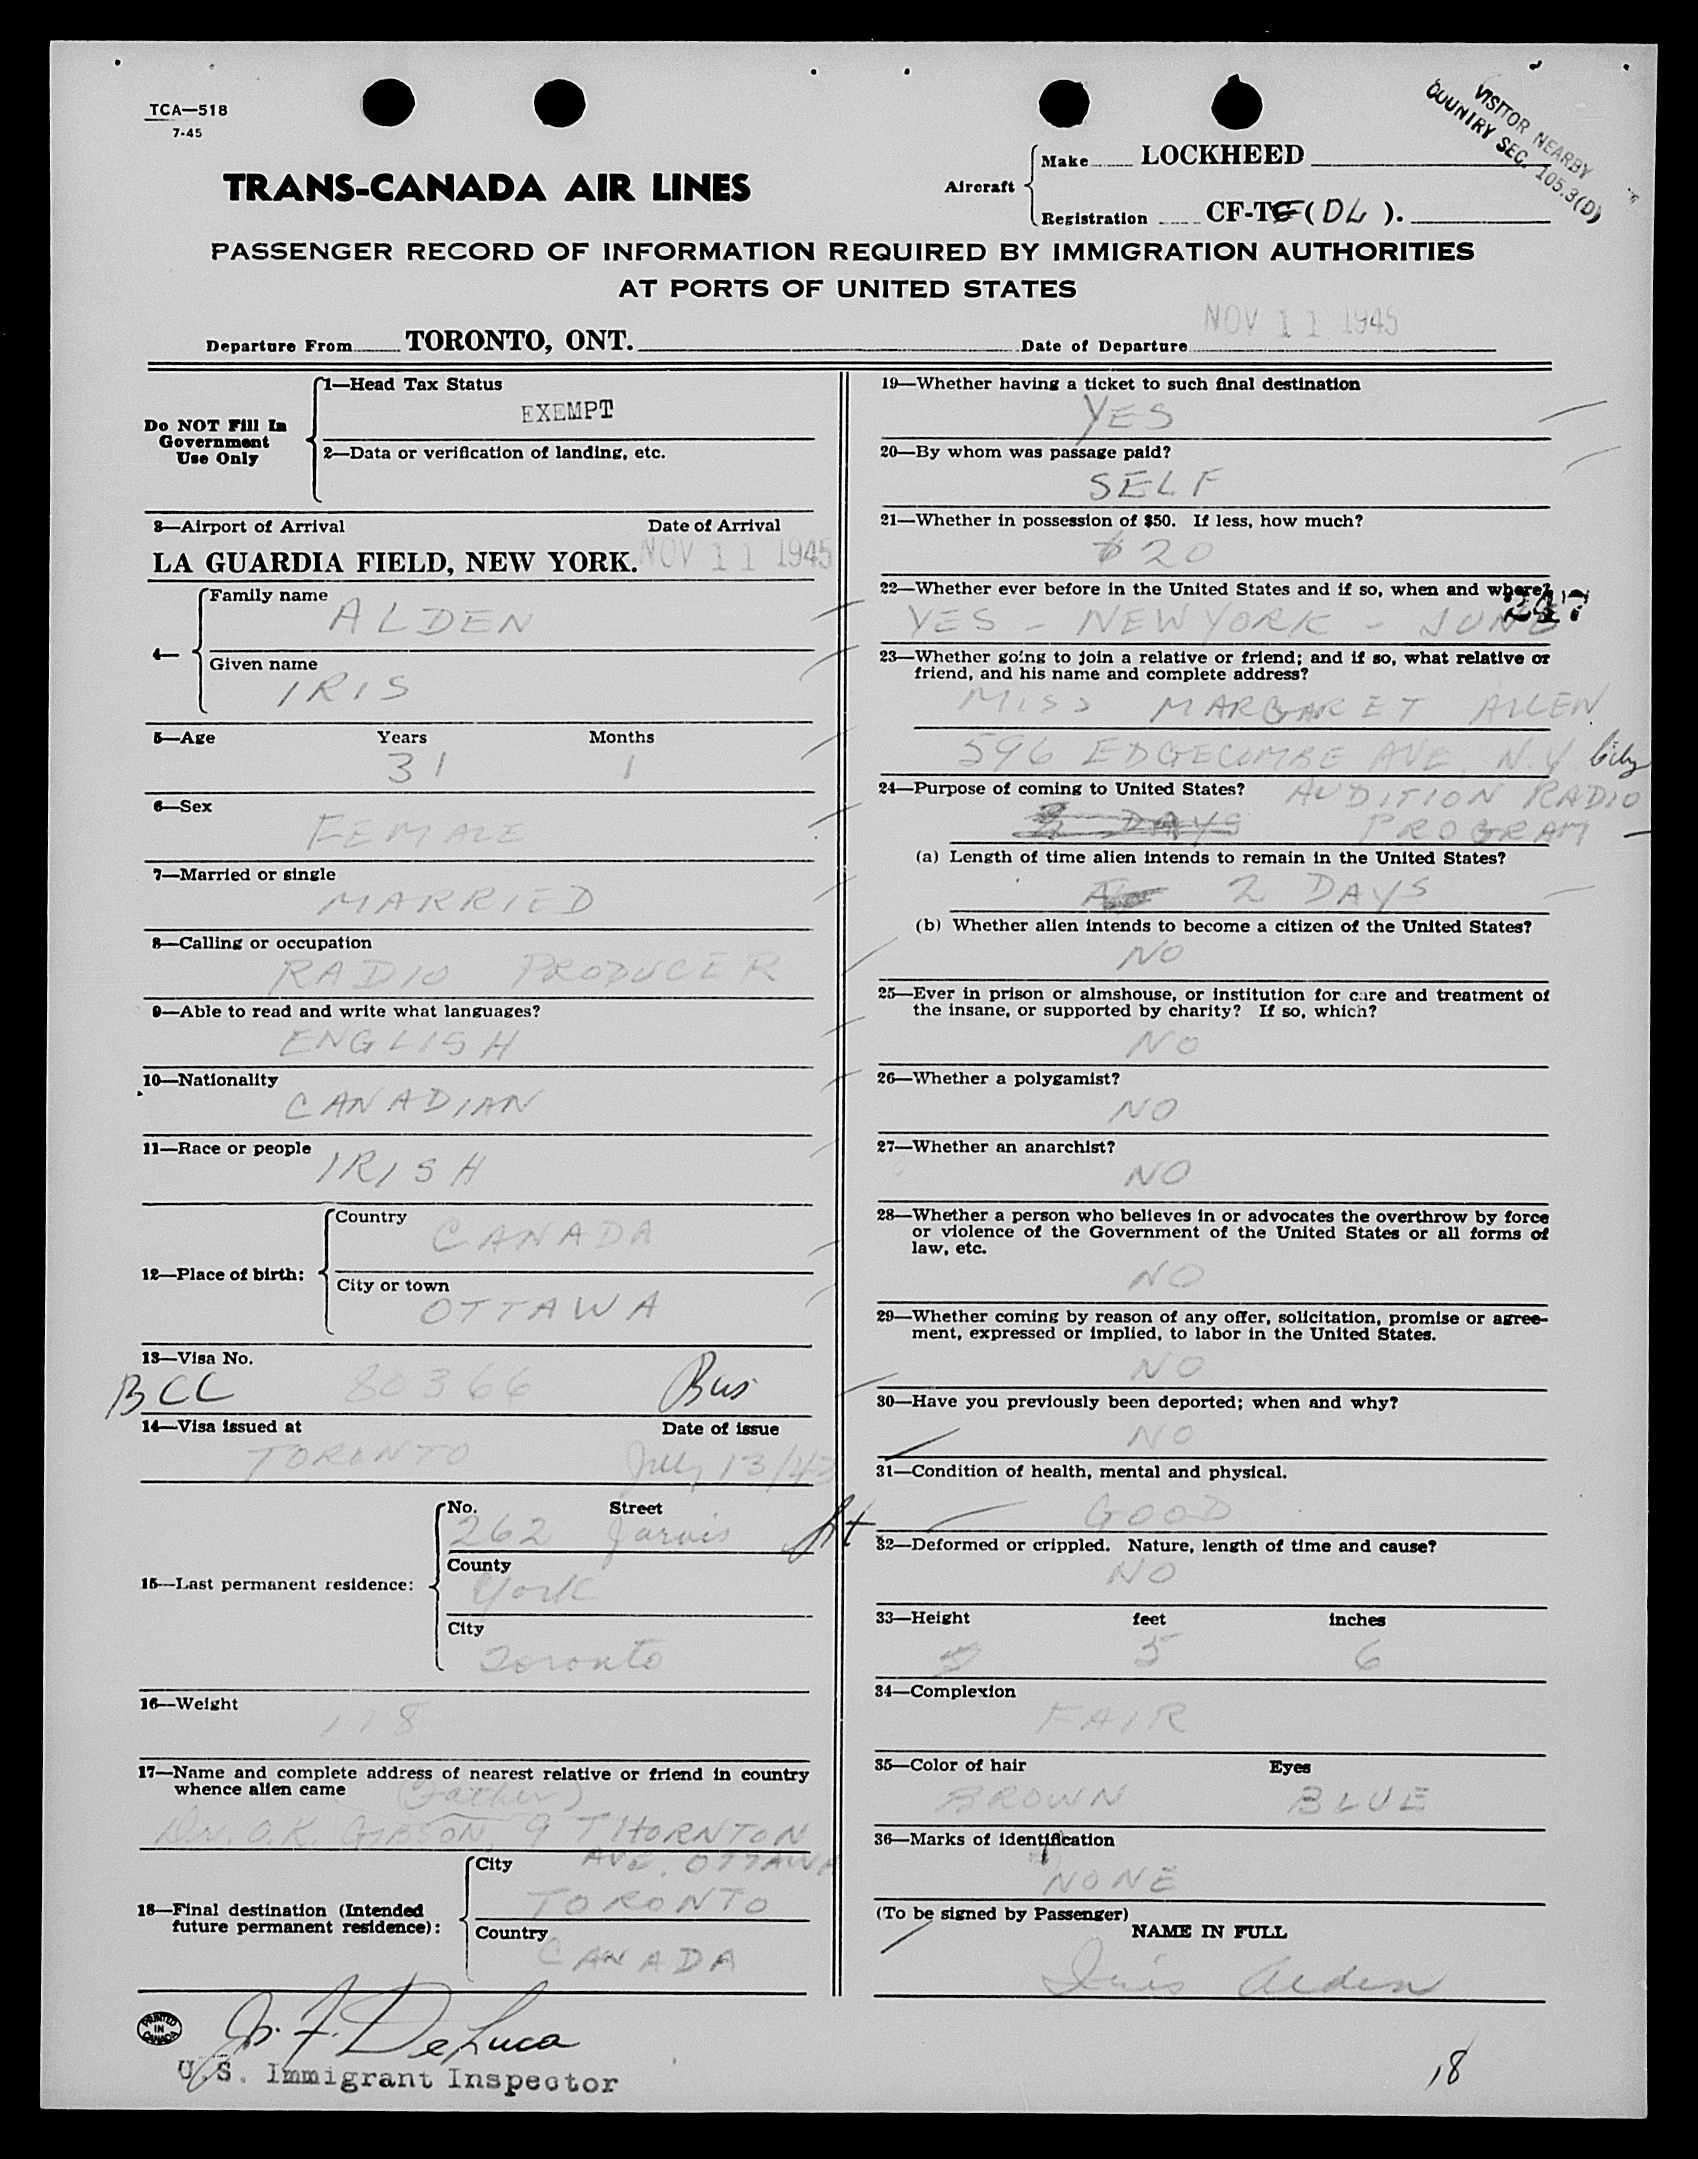 TCA—518
7-45
VISITOR NEARBY
COUNTRY SEC. 105.3(D)
TRANS-CANADA AIR LINES
Aircraft
Make LOCKHEED
Registration CF-T (DL ).
PASSENGER RECORD OF INFORMATION REQUIRED BY IMMIGRATION AUTHORITIES
AT PORTS OF UNITED STATES
Departure From TORONTO, ONT. Date of Departure NOV 11 1945
Do NOT Fill In
Government
Use Only
1—Head Tax Status
EXEMPT
2—Data or verification of landing, etc.
3—Airport of Arrival Date of Arrival
LA GUARDIA FIELD, NEW YORK. NOV 11 1945
4—
Family name
ALDEN
Given name
IRIS
5—Age Years Months
31 1
6—Sex
FEMALE
7—Married or single
MARRIED
8—Calling or occupation
RADIO PRODUCER
9—Able to read and write what languages?
ENGLISH
10—Nationality
CANADIAN
11—Race or people
IRISH
12—Place of birth:
Country
CANADA
City or town
OTTAWA
13—Visa No.
BCC 80366 Bus
14—Visa issued at Date of issue
TORONTO July 13/43
15—Last permanent residence:
No. Street
262 Jarvis St
County
York
City
Toronto
16—Weight
118
17—Name and complete address of nearest relative or friend in country
whence alien came
(Father)
Dr. O.K. GIBSON, 9 THORNTON
AVE. OTTAWA
18—Final destination (Intended
future permanent residence):
City
TORONTO
Country
CANADA
PRINTED IN CANADA
De Luca
U.S. Immigrant Inspector
19—Whether having a ticket to such final destination
YES
20—By whom was passage paid?
SELF
21—Whether in possession of $50. If less, how much?
$20
22—Whether ever before in the United States and if so, when and where?
YES - NEW YORK - JUNE
247
23—Whether going to join a relative or friend; and if so, what relative or
friend, and his name and complete address?
MISS MARGARET ALLEN
596 EDGECOMBE AVE. N.Y. City
24—Purpose of coming to United States? AUDITION RADIO
2 DAYS PROGRAM
(a) Length of time alien intends to remain in the United States?
2 DAYS
(b) Whether alien intends to become a citizen of the United States?
NO
25—Ever in prison or almshouse, or institution for care and treatment of
the insane, or supported by charity? If so, which?
NO
26—Whether a polygamist?
NO
27—Whether an anarchist?
NO
28—Whether a person who believes in or advocates the overthrow by force
or violence of the Government of the United States or all forms of
law, etc.
NO
29—Whether coming by reason of any offer, solicitation, promise or agree-
ment, expressed or implied, to labor in the United States.
NO
30—Have you previously been deported; when and why?
NO
31—Condition of health, mental and physical.
GOOD
32—Deformed or crippled. Nature, length of time and cause?
NO
33—Height feet inches
5 5 6
34—Complexion
FAIR
35—Color of hair Eyes
BROWN BLUE
36—Marks of identification
NONE
(To be signed by Passenger)
NAME IN FULL
Iris Alden
18